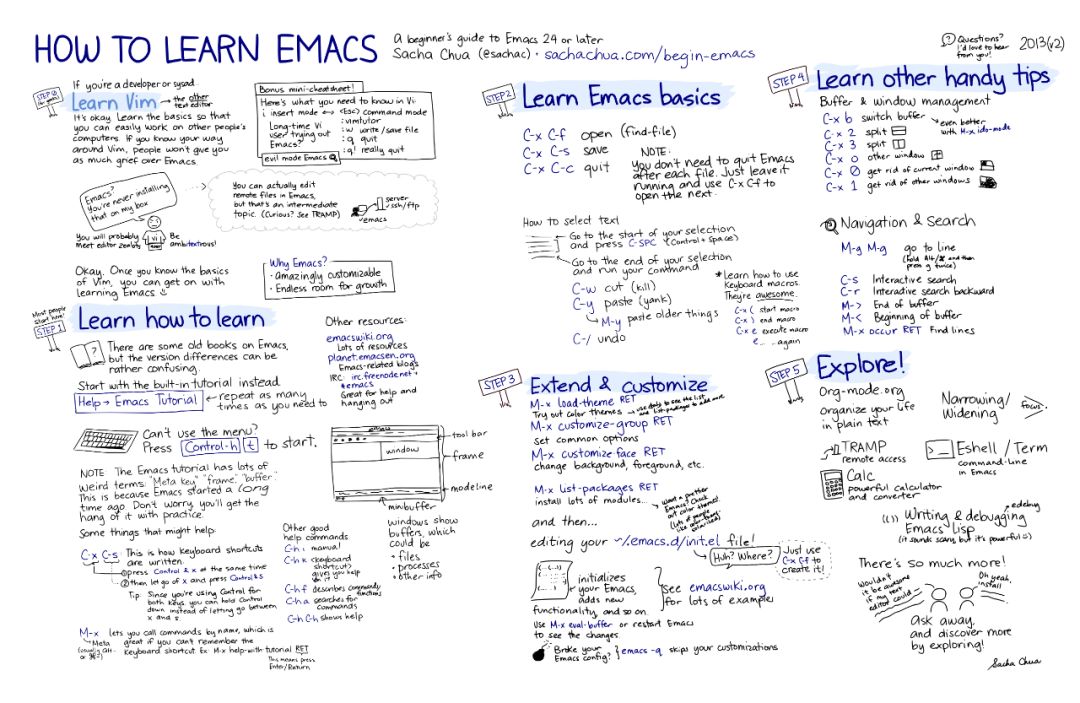 HOW TO LEARN EMACS
A beginner's guide to Emacs 24 or later
Sacha Chua (@sachac) · sachachua.com/begin-emacs
Questions?
I'd love to hear
from you!
2013(v2)
STEP 0
If you're a developer or sysad...
Learn Vim → the other
text editor
It's okay. Learn the basics so that
you can easily work on other people's
computers. If you know your way
around Vim, people won't give you
as much grief over Emacs.
Bonus mini-cheatsheet!
Here's what you need to know in Vi:
i insert mode ↔ <Esc> command mode
Long-time Vi
user trying out
Emacs?
:vimtutor
:w write/save file
:q quit
:q! really quit
evil mode Emacs
Emacs?
You're never installing
that on my box
You can actually edit
remote files in Emacs,
but that's an intermediate
topic. (Curious? See TRAMP)
server
ssh/ftp
emacs
You will probably
meet editor zombies
vi
Be
ambitextrous!
Okay. Once you know the basics
of Vim, you can get on with
learning Emacs
Why Emacs?
· amazingly customizable
· Endless room for growth
Most people
start here!
STEP 1
Learn how to learn
?
There are some old books on Emacs,
but the version differences can be
rather confusing.
Start with the built-in tutorial instead.
Help → Emacs Tutorial ← repeat as many
times as you need to
Other resources:
emacswiki.org
Lots of resources
planet.emacsen.org
Emacs-related blogs
IRC: irc.freenode.net
#emacs
Great for help and
hanging out
Can't use the menu?
Press Control-h t to start.
NOTE: The Emacs tutorial has lots of
weird terms: "Meta key," "frame," "buffer..."
This is because Emacs started a long
time ago. Don't worry, you'll get the
hang of it with practice.
emacs
window
tool bar
frame
modeline
minibuffer
windows show
buffers, which
could be
· files
· processes
· other info
Some things that might help:
C-x C-s This is how keyboard shortcuts
are written.
① press Control & x at the same time
② then let go of x and press Control & s
Tip: Since you're using Control for
both keys, you can hold Control
down instead of letting go between
x and s.
M-x lets you call commands by name, which is
great if you can't remember the
keyboard shortcut. Ex: M-x help-with-tutorial RET
Meta
(usually Alt-
or ⌘?)
This means press
Enter/Return
Other good
help commands
C-h i manual
C-h k (keyboard
shortcut)
gives you help
on it
C-h f describes commands/
functions
C-h a searches for
commands
C-h C-h shows help
STEP 2
Learn Emacs basics
C-x C-f open (find-file)
C-x C-s save
C-x C-c quit
NOTE:
You don't need to quit Emacs
after each file. Just leave it
running and use C-x C-f to
open the next.
How to select text
Go to the start of your selection
and press C-SPC (Control + Space)
Go to the end of your selection
and run your command
C-w cut (kill)
C-y paste (yank)
M-y paste older things
C-/ undo
* Learn how to use
Keyboard macros.
They're awesome.
C-x ( start macro
C-x ) end macro
C-x e execute macro
e... ...again
STEP 3
Extend & customize
M-x load-theme RET
Try out color themes
M-x customize-group RET
Set common options
M-x customize-face RET
change background, foreground, etc.
M-x list-packages RET
install lots of modules...
Want a prettier
Emacs? Check
out color themes!
(Lots of people
like color-theme-
solarized)
and then...
editing your ~/.emacs.d/init.el file!
Huh? Where?
Just use
C-x C-f to
create it!
initializes
your Emacs,
adds new
functionality, and so on.
See emacswiki.org
for lots of examples
Use M-x eval-buffer or restart Emacs
to see the changes.
Broke your
Emacs config? } emacs -q skips your customizations
STEP 4
Learn other handy tips
Buffer & window management
C-x b switch buffer
even better
with M-x ido-mode
C-x 2 split
C-x 3 split
C-x o other window
C-x 0 get rid of current window
C-x 1 get rid of other windows
Navigation & Search
M-g M-g go to line
(hold Alt/⌘ and then
press g twice)
C-s Interactive search
C-r Interactive search backward
M-> End of buffer
M-< Beginning of buffer
M-x occur RET Find lines
STEP 5
Explore!
Org-mode.org
organize your life
in plain text
Narrowing/
Widening
focus!
TRAMP
remote access
Eshell / Term
command-line
in Emacs
Calc
powerful calculator
and converter
Writing & debugging
Emacs Lisp
edebug
(it sounds scary, but it's powerful =)
There's so much more!
Wouldn't
it be awesome
if my text
editor could
Oh yeah,
install
Ask away,
and discover more
by exploring!
Sacha Chua